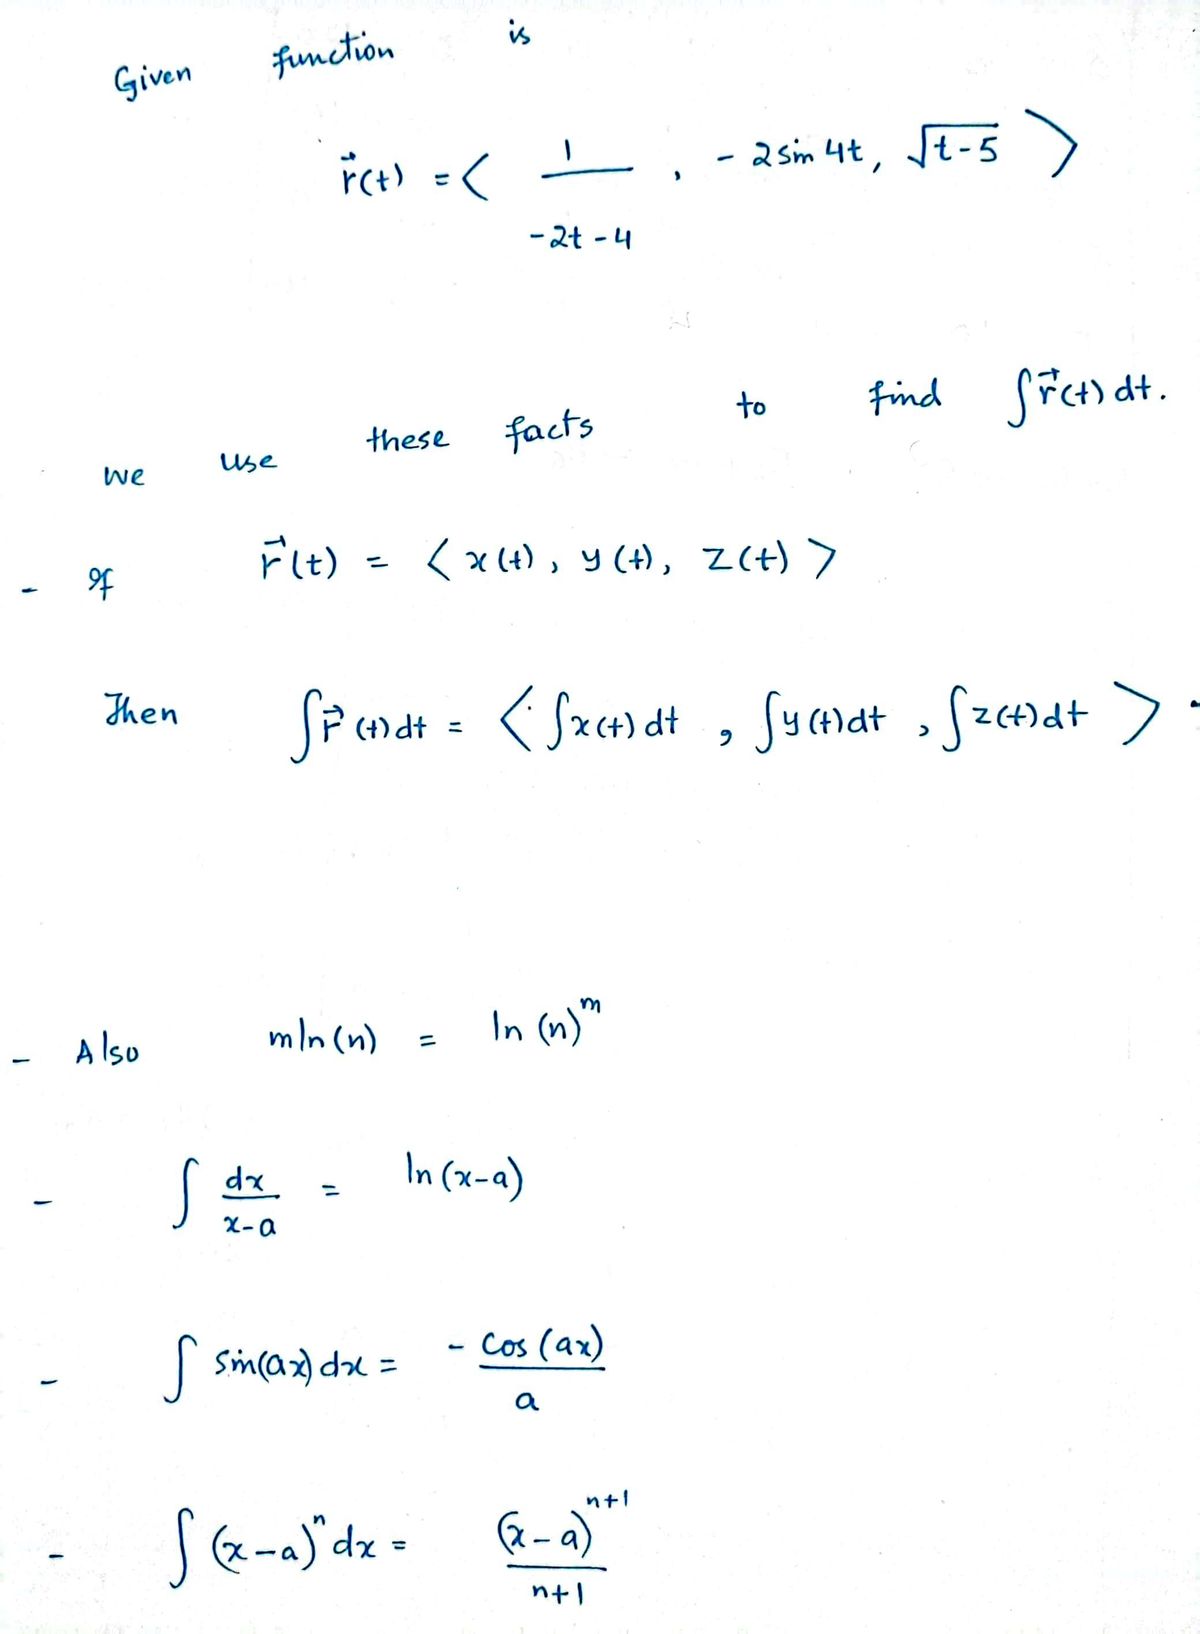 Given function is
r⃗(t) = < 1/(-2t - 4) , - 2 sin 4t, √(t-5) >
we use these facts to find ∫ r⃗(t) dt.
- If r⃗(t) = < x(t), y(t), z(t) >
Then ∫ r⃗(t) dt = < ∫ x(t) dt , ∫ y(t) dt , ∫ z(t) dt > .
- Also m ln(n) = ln (n)^m
- ∫ dx/(x-a) = ln (x-a)
- ∫ sin(ax) dx = - cos (ax)/a
- ∫ (x-a)^n dx = (x-a)^(n+1)/(n+1)